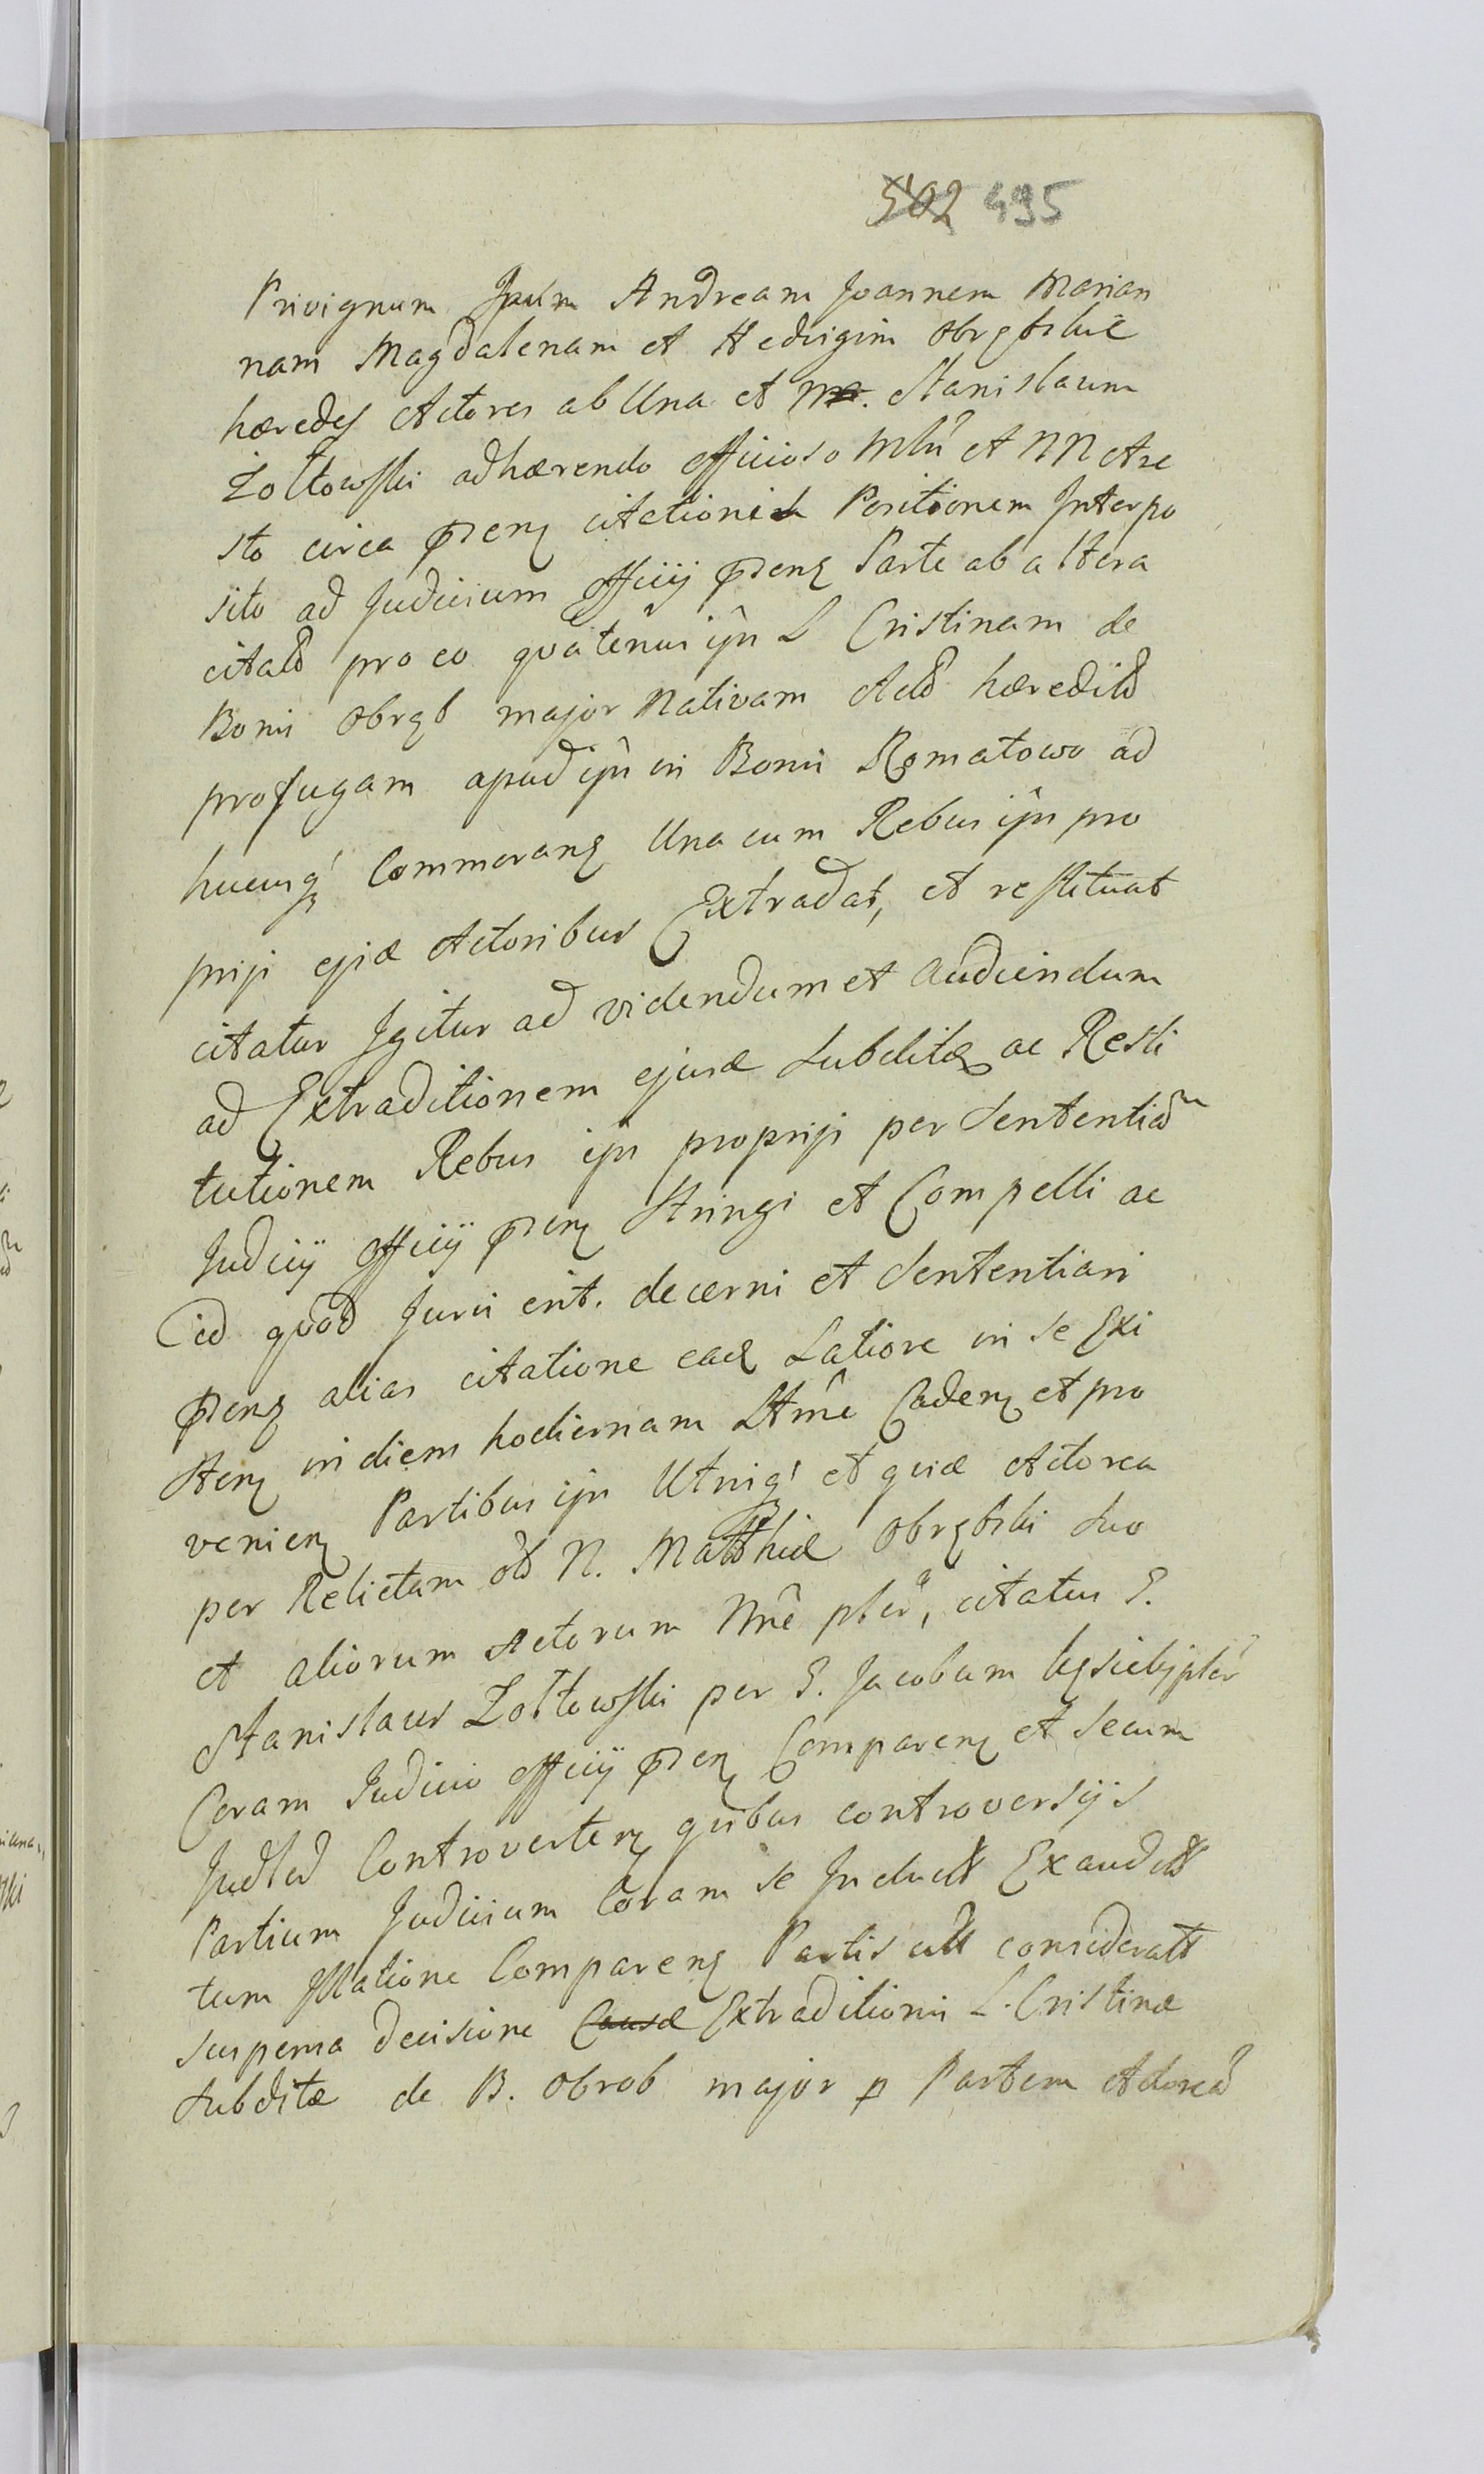 502 495
Privignum Ipsûm Andream Joannem Marian
nam Magdalenam et Hedvigim Obrębskie
hæredes Actores ab Una et Stanislaum
Żołtowski adhærendo officioso Mlri et NN Are
sto circa præns citationis Positionem Interpo
sito ad Judicium officij præns Parte ab altera
citatô pro eo quatenus ijn L Cristinam de
Bonis Obręb major Nativam Actô hæreditô
profugam apud ijn in Bonis Romatowo ad
hucusq Commorans Una cum Rebus ijn pro
prijs ejus Actoribus Extradat, et restituat
citatur Igitur ad videndum et audiendum
ad Extraditionem ejusd Subditæ ac Resti
tutionem Rebus ijn proprijs per Sententiam
Judicij officij præns Stringi et Compelli ac
id quod Juris erit. decerni et Sententiari
præns alias citatione ead Latiore in se Exi
stens in diem hodiernam Ltmê Cadens et pro
veniens Partibus ijn Utrisq et quia Actorea
per Relictam ol N. Matthiæ Obrębski Suo
et aliorum Actorum Nnê pler, citatus G.
Stanislaus Zołtowski per G. Jacobum
Coram Judicio officij præns Comparens et Secum
Judled Controvertens quibus controversijs
Partium Judicium Coram se Inductt Exauditt
tum Illatione Comparens Partis citt consideratt
suspensa decisione Causæ Extraditionis L. Cristinæ
Subditæ de B. Obrob major p Partem Actoreâ